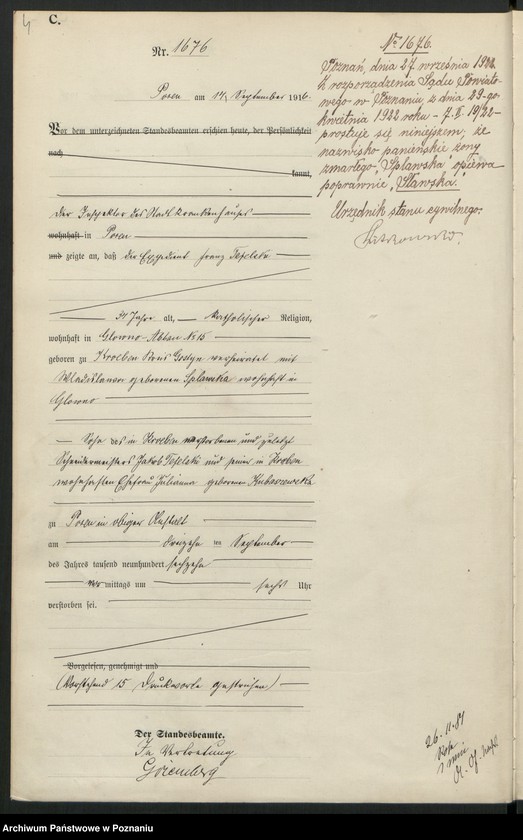 C.
Nr. 1676
Posen am 14. September 1916.
Vor dem unterzeichneten Standesbeamten erschien heute, der Persönlichkeit
nach
kannt,
der Inspektor des Stadtkrankenhauses
wohnhaft in Posen
und zeigte an, daß der Expedient Franz
34 Jahre alt, katholischer Religion,
wohnhaft in Glowno Abbau № 15
geboren zu Kroeben Kreis Gostyn verheiratet mit
Wladislawa geborenen Splawska wohnhaft in
Glowno
Sohn des in Kroeben verstorbenen und zuletzt
Schneidermeisters Jakob und seiner in Kroeben
wohnhaften Ehefrau Julianna geborenen
zu Posen in obiger Anstalt
am dreizehn ten September
des Jahres tausend neunhundert sechzehn
mittags um sechs Uhr
verstorben sei.
Vorgelesen, genehmigt und
(Vorstehend 15 Druckworte gestrichen)
Der Standesbeamte.
In Vertretung
Goremberg
№ 1676.
Poznań, dnia 27. września 1922.
Z rozporządzenia Sądu Powiato-
wego w Poznaniu, z dnia 29-go
kwietnia 1922 roku - 7. II. 19/22 -
prostuje się niniejszem, że
nazwisko panieńskie żony
zmarłego "Splawska" opiewa
poprawnie "Sławska."
Urzędnik stanu cywilnego.
26.11.81
Archiwum Państwowe w Poznaniu